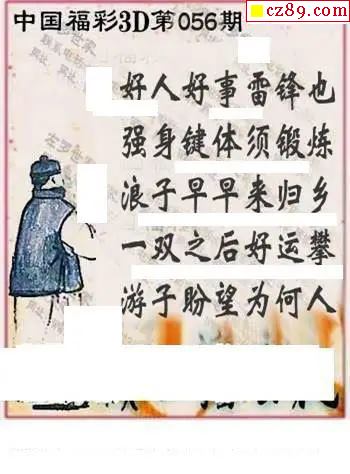 cz89.com
中国福彩3D第056期
好人好事雷锋也
强身键体须锻炼
浪子早早来归乡
一双之后好运攀
游子盼望为何人